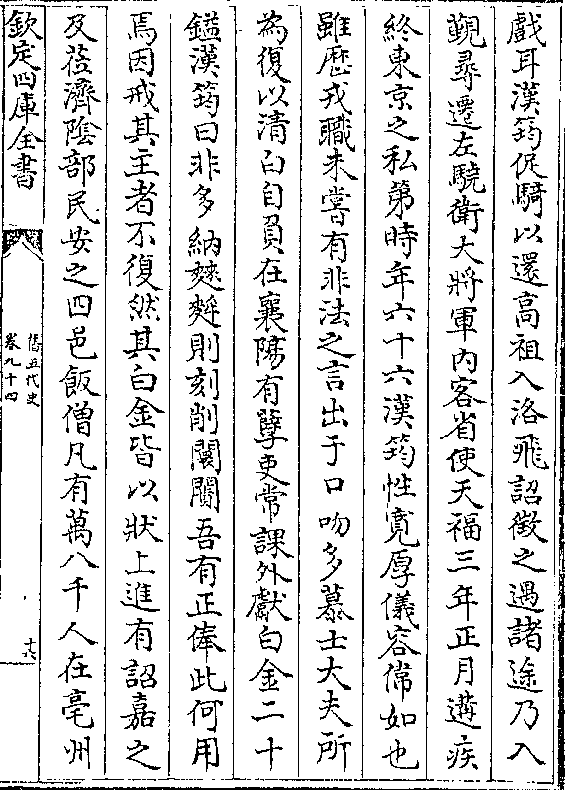 戯耳漢筠促騎以還高祖入洛飛詔徵之遇諸途乃入
覲尋遷左驍衛大將軍内客省使天福三年正月遘疾
終東京之私第時年六十六漢筠性寛厚儀容偉如也
雖歴戎職未嘗有非法之言出于口吻多慕士大夫所
為復以清白自負在襄陽有孽吏常課外獻白金二十
鎰漢筠曰非多納麰麰則刻削闤闠吾有正俸此何用
焉因戒其主者不復然其白金皆以狀上進有詔嘉之
及蒞濟陰部民安之四邑飯僧凡有萬八千人在亳州
欽定四庫全書
舊五代史
卷九十四
十六